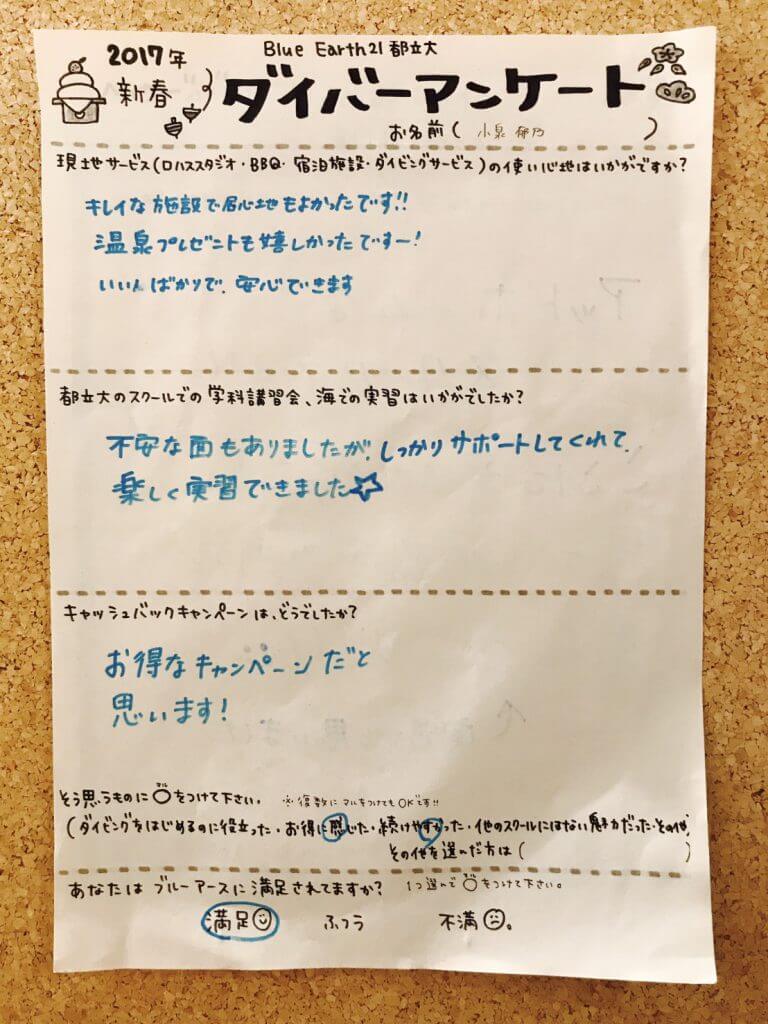 2017年
新春
Blue Earth21 都立大
ダイバーアンケート
お名前( 小泉 郁乃 )
現地サービス(ロハススタジオ・BBQ・宿泊施設・ダイビングサービス)の使い心地はいかがですか?
キレイな施設で居心地もよかったです!!
温泉プレゼントも嬉しかったですー!
いい人ばかりで、安心できます
都立大のスクールでの学科講習会、海での実習はいかがでしたか?
不安な面もありましたが、しっかりサポートしてくれて、
楽しく実習できました☆
キャッシュバックキャンペーンは、どうでしたか?
お得なキャンペーンだと
思います!
そう思うものに○をつけて下さい。 ※複数にマルをつけてもOKです!!
マル
(ダイビングをはじめるのに役立った・お得に感じた・続けやすかった・他のスクールにはない魅力だった・その他、
その他を選んだ方は( )
あなたはブルーアースに満足されてますか? 1つ選んで○をつけて下さい。
満足 ふつう 不満。